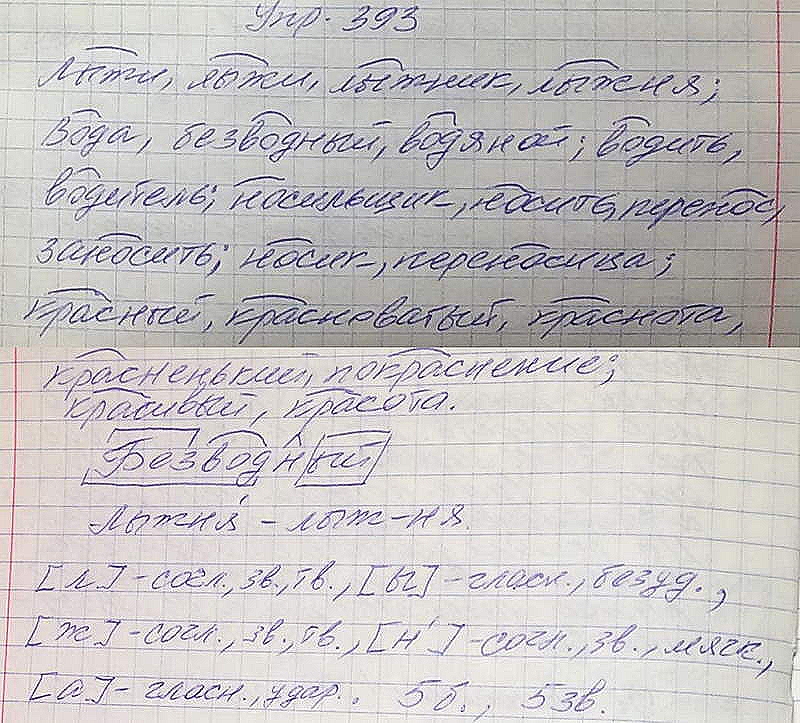 Упр. 393
Лыжи, лыжи, лыжник, лыжня;
Вода, безводный, водяной; водить,
водитель; носильщик, носить, перенос,
заносить; носик, переносица;
красный, красноватый, краснота,
красненький, покраснение;
красивый, красота.
Безводный
Лыжня́ - лыж-ня.
[л] - согл., зв., тв., [ы] - гласн., безуд.,
[ж] - согл., зв., тв., [н'] - согл., зв., мягк.,
[а] - гласн., удар. 5 б., 5 зв.